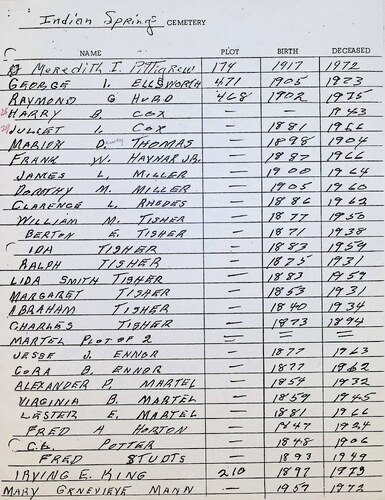 Indian Springs CEMETERY
NAME PLOT BIRTH DECEASED
Meredith I. Pittigrew 174 1917 1972
GEORGE I. ELLSWORTH 471 1905 1923
RAYMOND G HURD 468 1902 1975
HARRY B. COX — — 1943
JULLET I. COX — 1881 1966
MARION D. THOMAS — 1898 1904
FRANK W. HAYNAR JR. — 1887 1966
JAMES L. MILLER — 1900 1964
DOROTHY M. MILLER — 1905 1960
CLARENCE L. RHODES — 1886 1962
WILLIAM M. TISHER — 1877 1950
BERTON E. TISHER — 1871 1938
IDA TISHER — 1883 1959
RALPH TISHER — 1875 1931
LIDA SMITH TISHER — 1883 1959
MARGARET TISHER — 1853 1931
ABRAHAM TISHER — 1840 1934
CHARLES TISHER — 1873 1894
MARTEL PLOT OF 2 — — —
JESSE J. ENNOR — 1877 1963
CORA B. ENNOR — 1877 1962
ALEXANDER P. MARTEL — 1854 1932
VIRGINIA B. MARTEL — 1859 1945
LESTER E. MARTEL — 1881 1966
FRED A HORTON — 1847 1924
C.B. POTTER — 1848 1906
FRED STUDTS — 1893 1949
IRVING E. KING 210 1897 1979
MARY GENEVIEVE MANN — 1957 1972